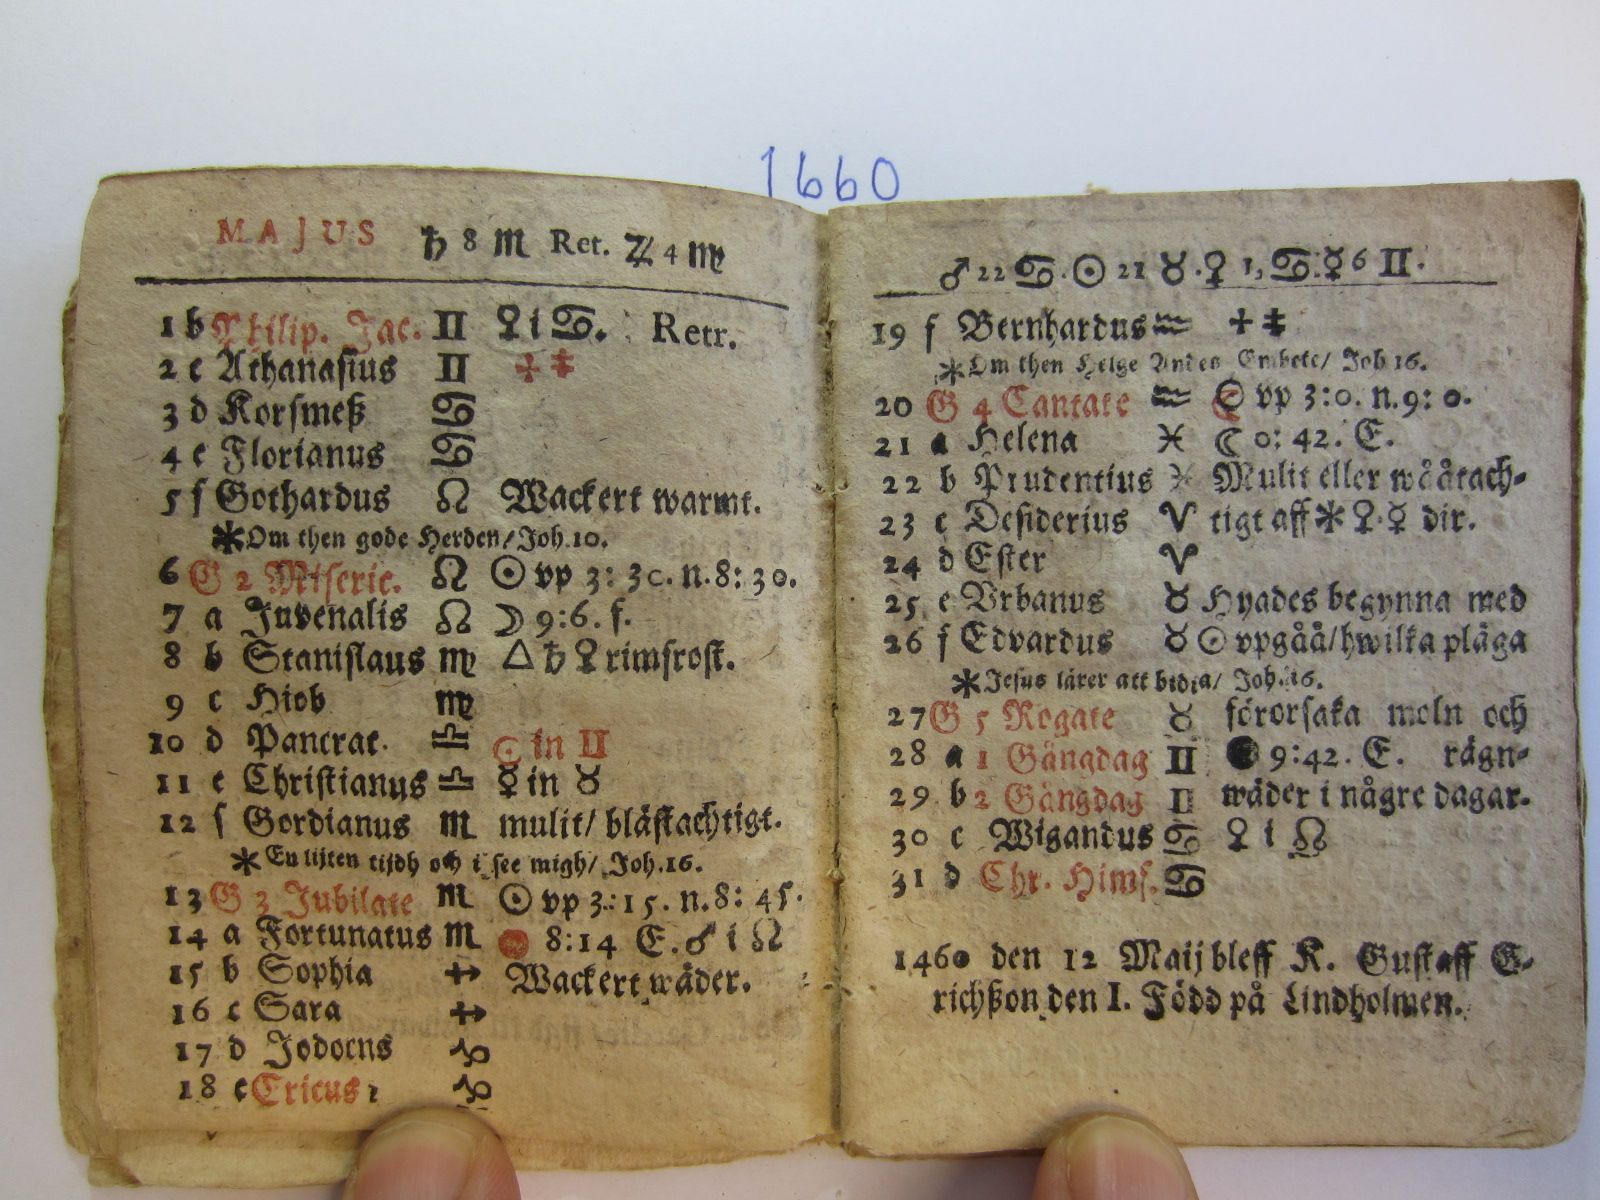 1660
MAJUS ♄ 8 ♏ Ret. ♃ 4 ♍
1 b Philip. Jac. ♊ ♀ i ♋. Retr.
2 c Athanasius ♊ ✢ ⯒
3 d Korsmeß ♋
4 e Florianus ♋
5 f Gothardus ♌ Wackert warmt.
* Om then gode Herden/ Joh. 10.
6 G 2 Miseric. ♌ ☉ vp 3: 30. n. 8: 30.
7 a Juvenalis ♌ ☽ 9:6. f.
8 b Stanislaus ♍ △ ♄ ♀ rimfrost.
9 c Hiob ♍
10 d Pancrat. ♎ ☉ in ♊
11 e Christianus ♎ ☿ in ♉
12 f Gordianus ♏ mulit/ blåstachtigt.
* En lijten tijdh och i see migh/ Joh. 16.
13 G 3 Jubilate ♏ ☉ vp 3: 15. n. 8: 45.
14 a Fortunatus ♏ 8:14 E. ♂ i ♌
15 b Sophia ♐ Wackert wäder.
16 c Sara ♐
17 d Jodocns ♑
18 e Ericus ♑
♂ 22 ♋. ☉ 21 ♉. ♀ 1, ♋. ☿ 6 ♊.
19 f Bernhardus ♒ ✢ ⯒
* Om then Helge Andes Embete/ Joh 16.
20 G 4 Cantate ♒ ☉ vp 3: 0. n. 9: 0.
21 a Helena ♓ ☾ 0: 42. E.
22 b Prudentius ♓ Mulit eller wååtach-
23 c Desiderius ♈ tigt aff * ♀ ☿ dir.
24 d Ester ♈
25 e Vrbanus ♉ Hyades begynna med
26 f Edvardus ♉ ☉ vpgåå/ hwilka pläga
* Jesus lärer att bidia/ Joh. 16.
27 G 5 Rogate ♉ förorsaka moln och
28 a 1 Gångdag ♊ ● 9:42. E. rägn-
29 b 2 Gångdag ♊ wäder i någre dagar.
30 c Wigandus ♋ ♀ i ♌
31 d Chr. Himf. ♋
1460 den 12 Maij bleff K. Gustaff E-
richßon den I. Född på Lindholmen.